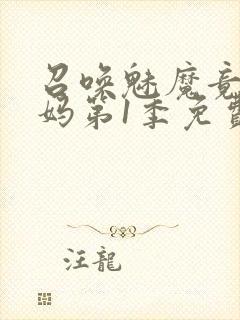 召唤魅魔竟
妈第1季免费
汪龍